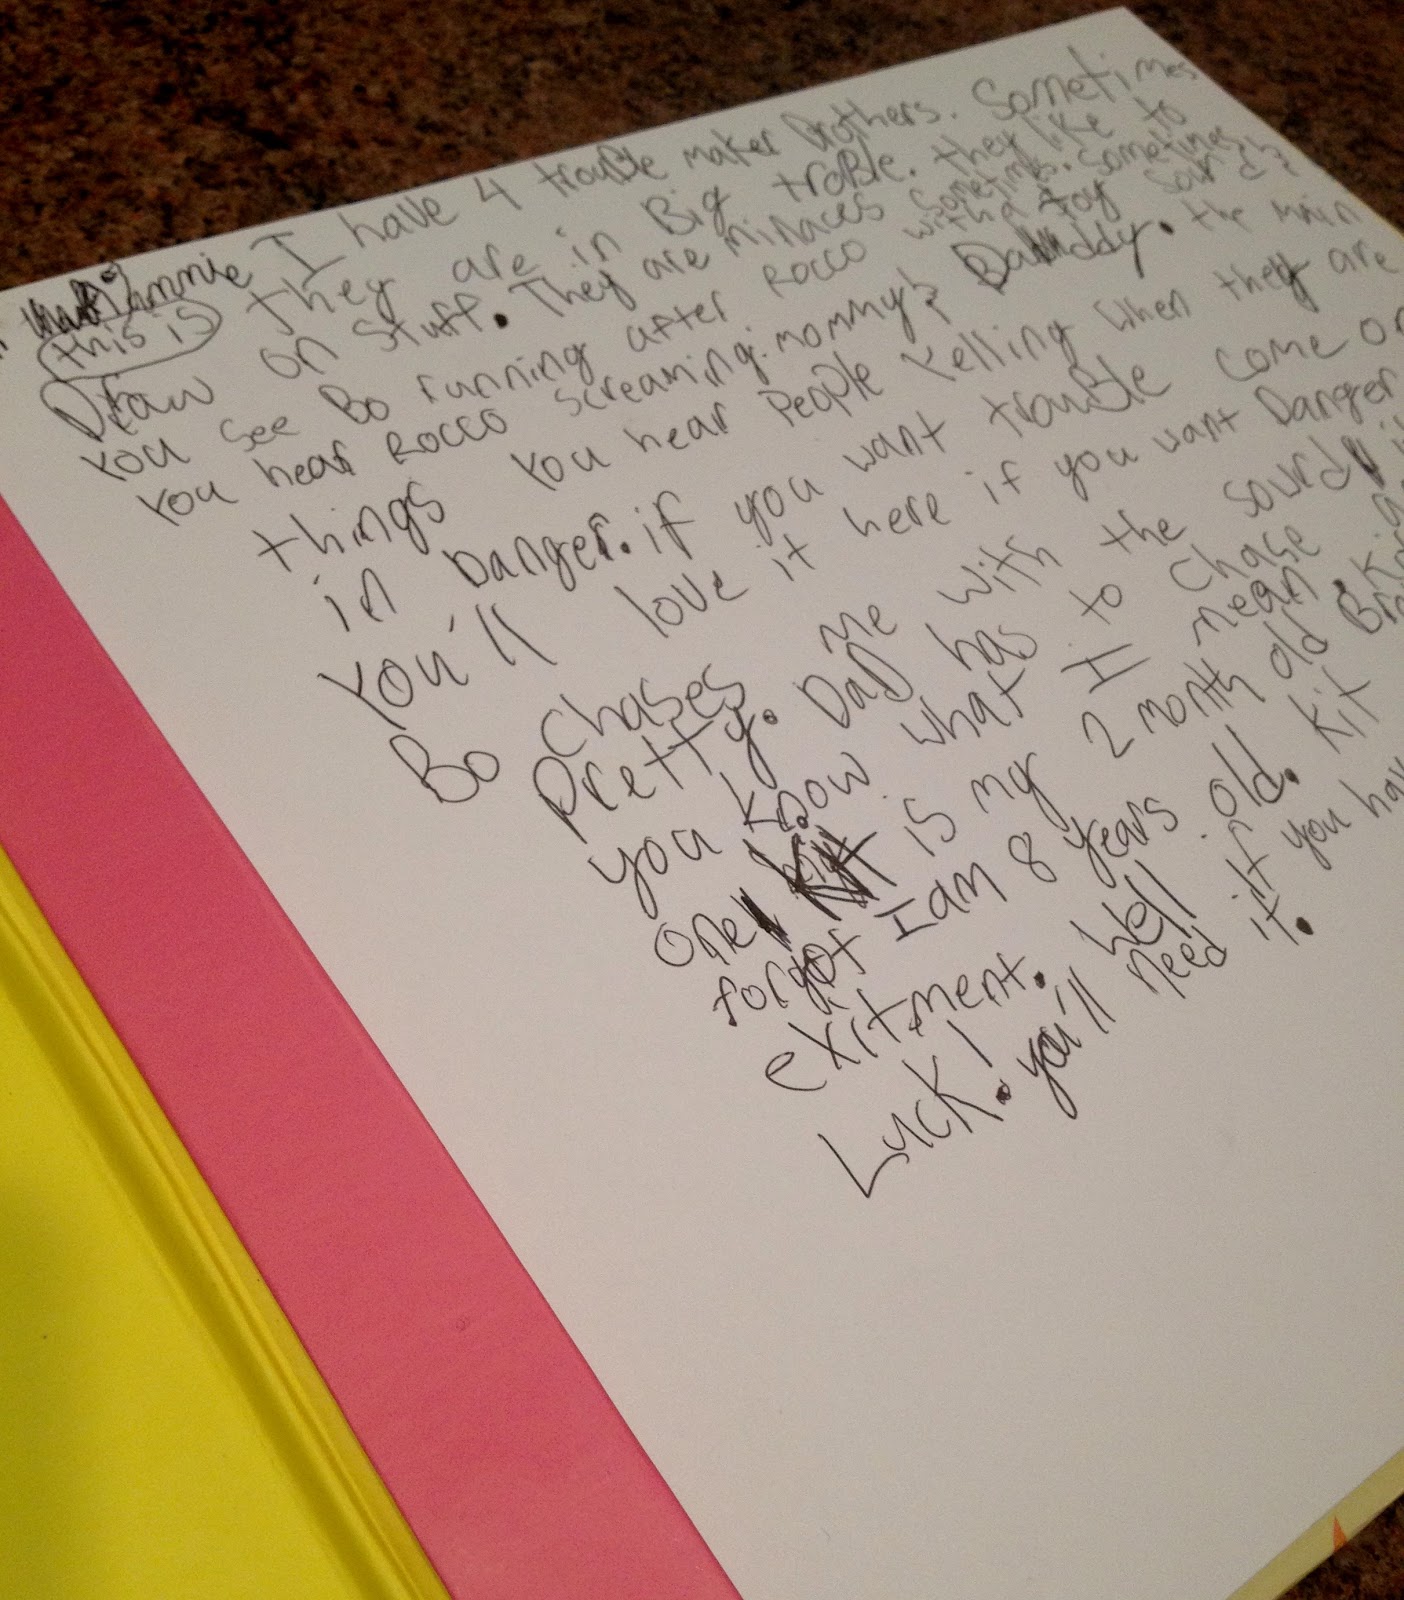 I have 4 trouble maker Brothers. Sometimes
this is they are in Big troBle. they like to
Draw on Stuff. They are minaces sometimes. sometimes
You see Bo running after Rocco with a toy Sourd
You hear Rocco screaming. mommy Daddy. the main
things You hear People Yelling when they are
in Danger. if you want trouble come on
You'll love it here if you want Danger
Bo Chases me with the sourd
Pretty. Dad has to chase
you know what I mean.
one is my 2 month old
forgot I am 8 years old. Kit
exitment. Well if you
Luck! you'll need it.